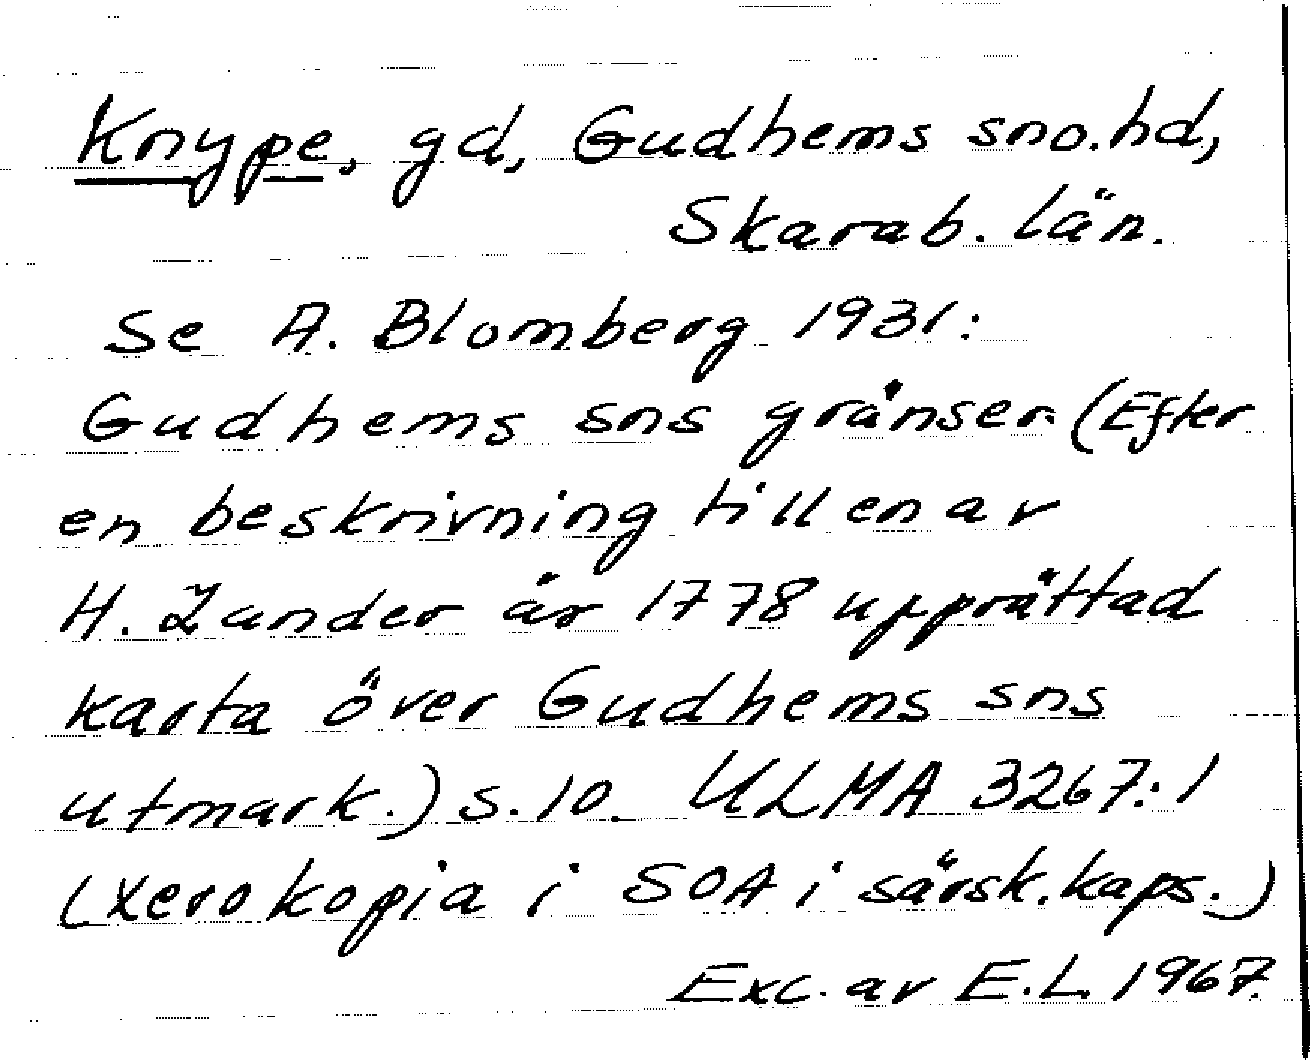 Knype, gd, Gudhems sn o. hd,
Skarab. län.
Se A. Blomberg 1931:
Gudhems sns gränser. (Efter
en beskrivning till en av
H. Zander år 1778 upprättad
karta över Gudhems sns
utmark.) s. 10. ULMA 3267:1
(Xerokopia i SOA i särsk. kaps.)
Exc. av E.L. 1967.